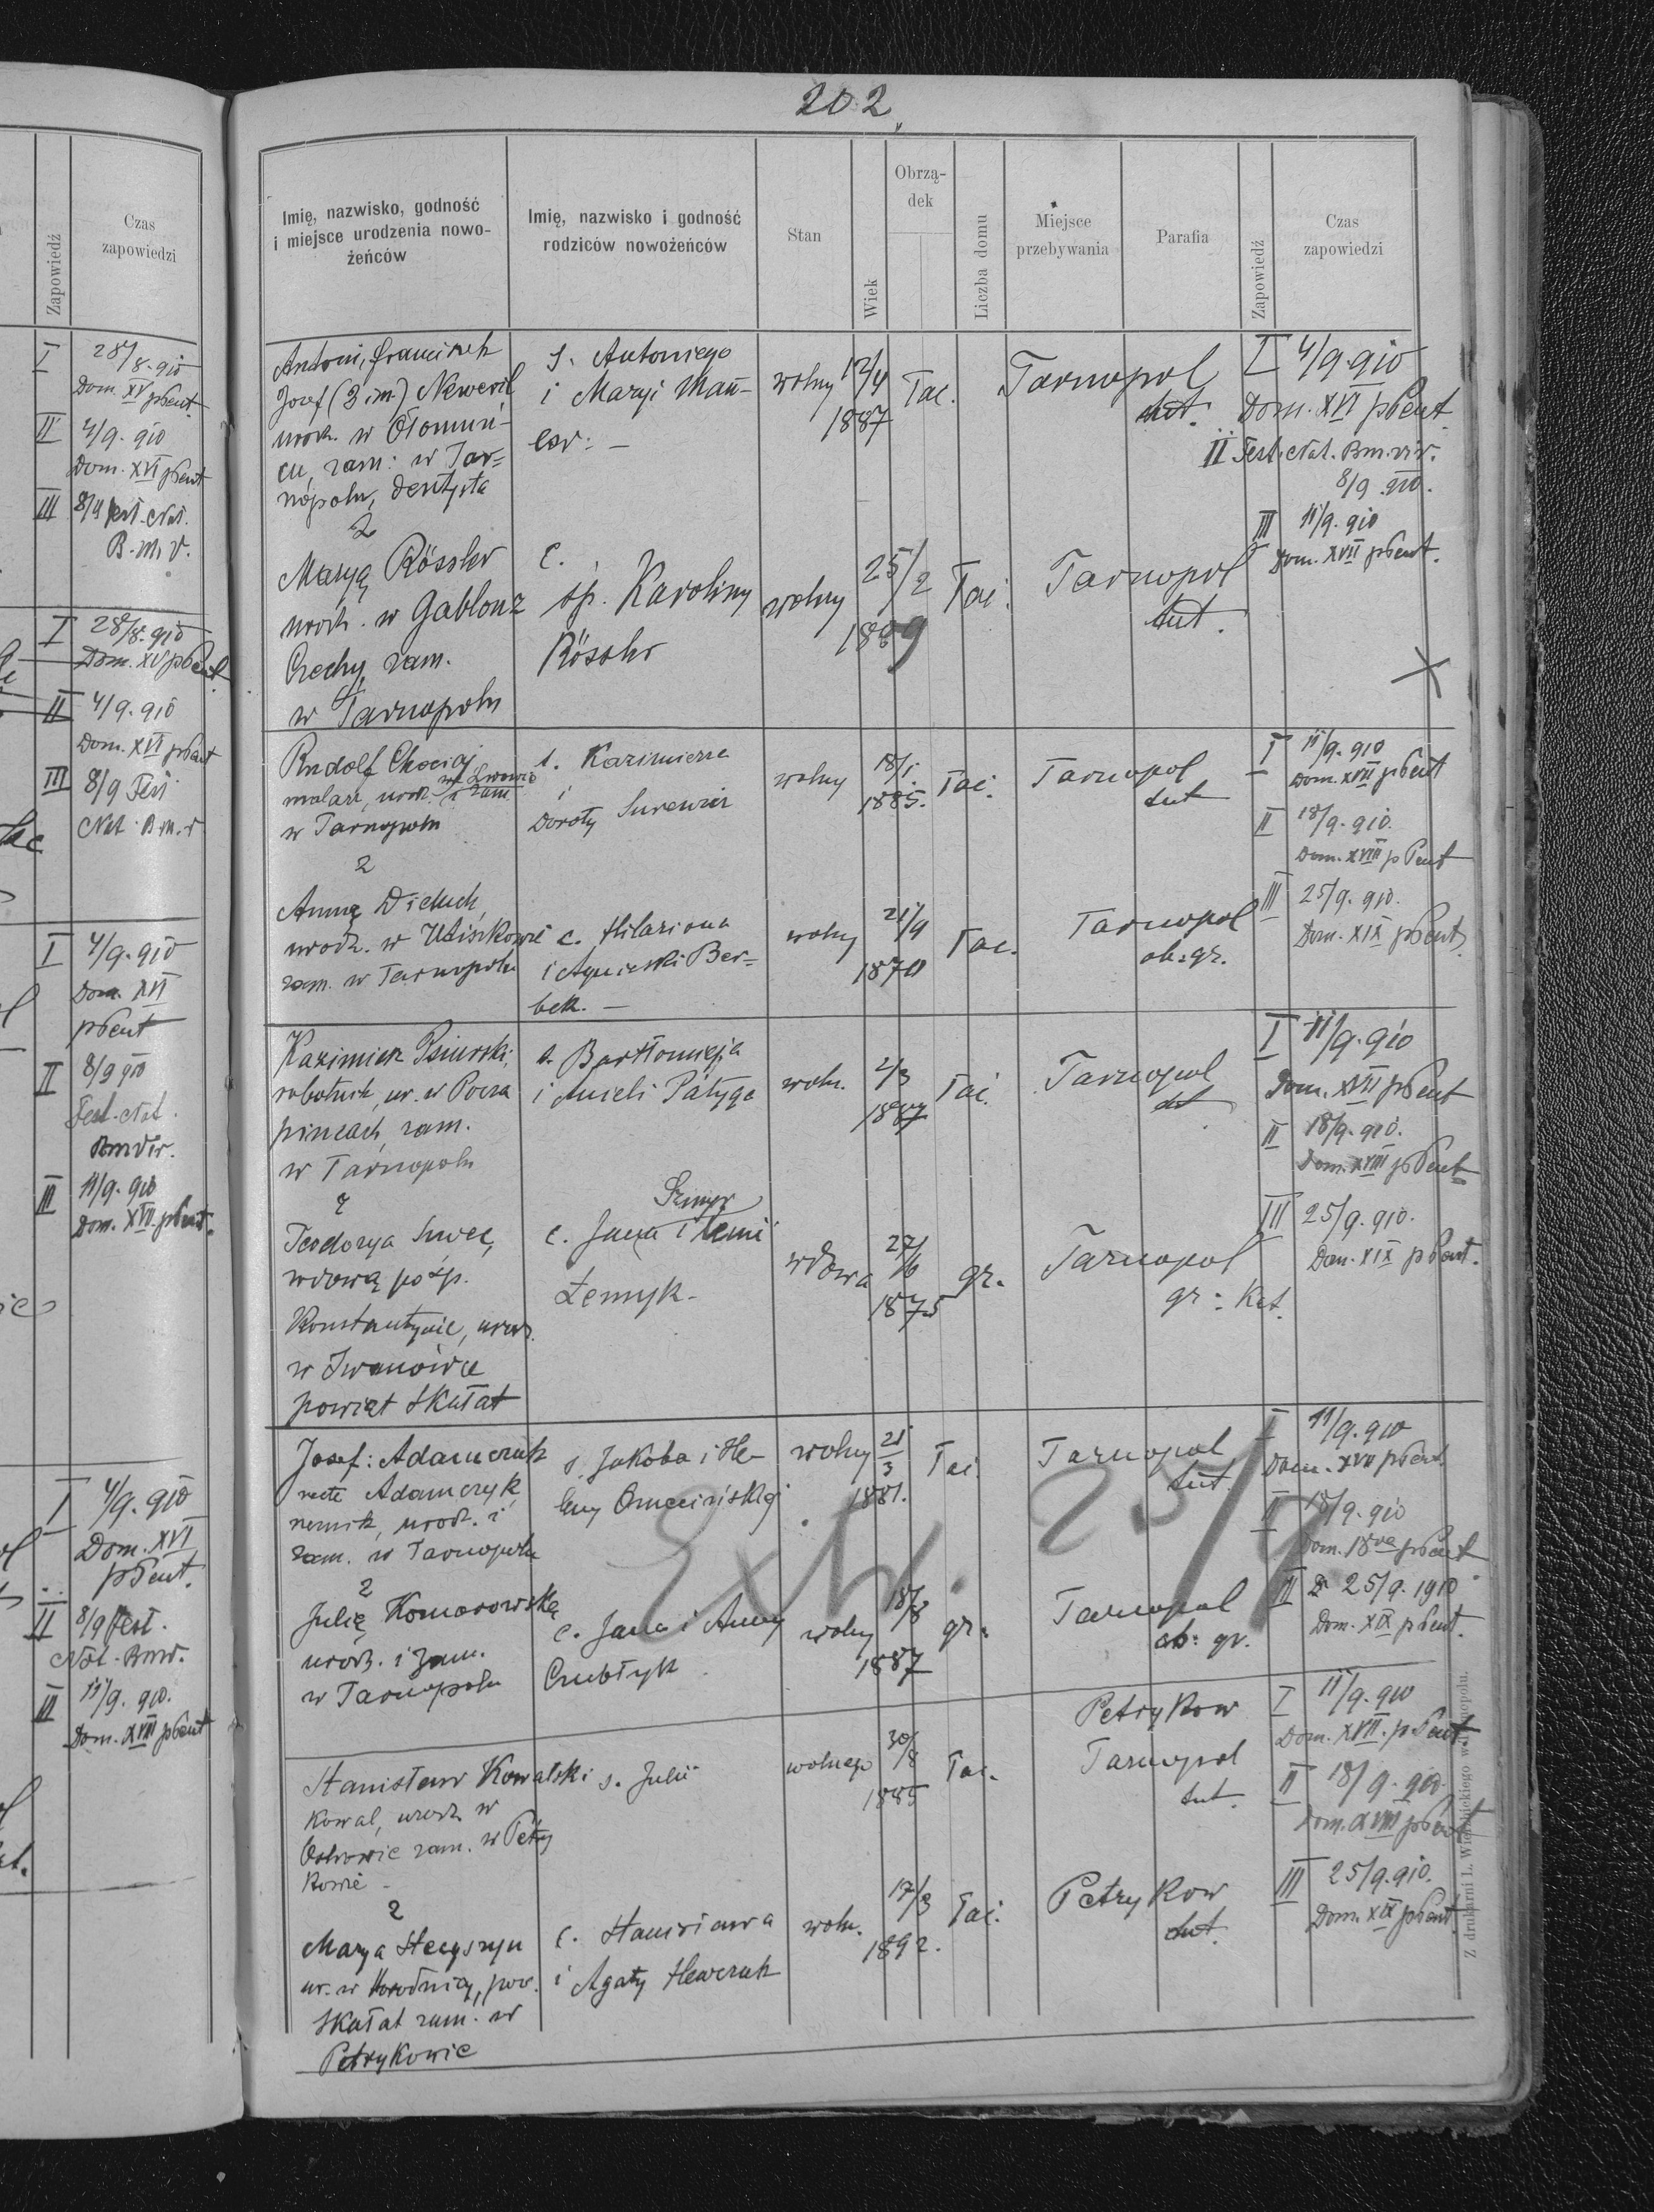 202
Imię, nazwisko, godność
i miejsce urodzenia nowo-
żeńców
Imię, nazwisko i godność
rodziców nowożeńców
Stan
Wiek
Obrzą-
dek
Liczba domu
Miejsce
przebywania
Parafia
Zapowiedź
Czas
zapowiedzi
Zapowiedź
Czas
zapowiedzi
I 28/8. 910
Dom. XV pSent.
II 4/9. 910
Dom. XVI pSent
III 8/9 Fest. Nat.
B. M. V.
I 28/8. 910
Dom. XV pSent
II 4/9. 910
Dom. XVI pSent
III 8/9 Fest
Nat. B. m. V
I 4/9. 910
Dom. XVI
pSent
II 8/9 910
Fest. Nat.
BmVir.
III 11/9. 910
Dom. XVII. pSent.
I 4/9. 910
Dom. XVI
pSent.
II 8/9 Fest.
Nat. Bmv.
III 11/9. 910.
Dom. XVII pSent
Antoni, Franciszek
Józef (3 im)
urodz. w Ołomuń-
cu, zam: w Tar=
nopolu, dentysta
s. Antoniego
i Maryi
wolny
12/4
1887
łac.
Tarnopol
tut.
I 4/9. 910
Dom. XVI pSent.
II Fest. Nat. Bm.vir.
8/9 910.
III 11/9. 910
Dom. XVII pSent.
z
Maryą Rössler
urodz. w Gablonz
Czechy, zam.
w Tarnopolu
c.
śp. Karoliny
Rössler
wolny
25/2
1889
łac.
Tarnopol
tut.
Rudolf
malarz, urodz. we Lwowie
i zam.
w Tarnopolu
s. Kazimierza
i
Doroty
wolny
18/1.
1885.
łac.
Tarnopol
tut
I 11/9. 910
Dom. XVII pSent
II 18/9. 910.
Dom. XVIII pSent
III 25/9. 910.
Dom. XIX pSent.
z
Anną
urodz. w
zam. w Tarnopolu
c. Hilariona
i Agnieszki Ber=
bek. —
wolny
21/9
łac.
Tarnopol
ob: gr.
Kazimierz
robotnik, ur. w
zam.
w Tarnopolu
s. Bartłomieja
i Anieli Patyga
woln.
2/3
1887
łac.
Tarnopol
tut
I 11/9. 910
Dom. XVII pSent
II 18/9. 910.
Dom. XVIII pSent
III 25/9. 910.
Dom. XIX pSent.
z
Teodorya
wdową po śp.
Konstantynie, urodz.
w Iwanówce
powiat Skałat
c. Jana i
wdowa
27/6
1875
gr.
Tarnopol
gr: Kat.
Józef: Adamczuk
recte Adamczyk
urodz. i
zam. w Tarnopolu
s. Jakóba i He-
leny
wolny
21/3
1881.
łac.
Tarnopol
tut.
I 11/9. 910
Dom. XVII pSent.
II 18/9. 910
Dom. 18va pSent
III 25/9. 1910
Dom. XIX pSent.
z
Julię Komorowską
urodz. i zam.
w Tarnopolu
c. Jana i Anny
wolny
18/8
1887
gr.
Tarnopol
ob: gr.
25/9
Stanisław Kowalski
Kowal, urodz. w
Ostrowie zam. w Petry
Kowie -
s. Julii
wolnego
30/8
1885
łac.
Petrykow
Tarnopol
tut.
I 11/9. 910
Dom. XVII. pSent
II 18/9. 910.
Dom. XVIII pSent
III 25/9. 910.
Dom. XIX pSent.
z
Marya Stecyszyn
ur. w Horodnicy, pow.
Skałat zam. w
Petrykowie
c. Stanisława
i Agaty
woln.
17/3
1892.
łac.
Petrykow
tut.
Z drukarni L. Wierzbickiego w Tarnopolu.